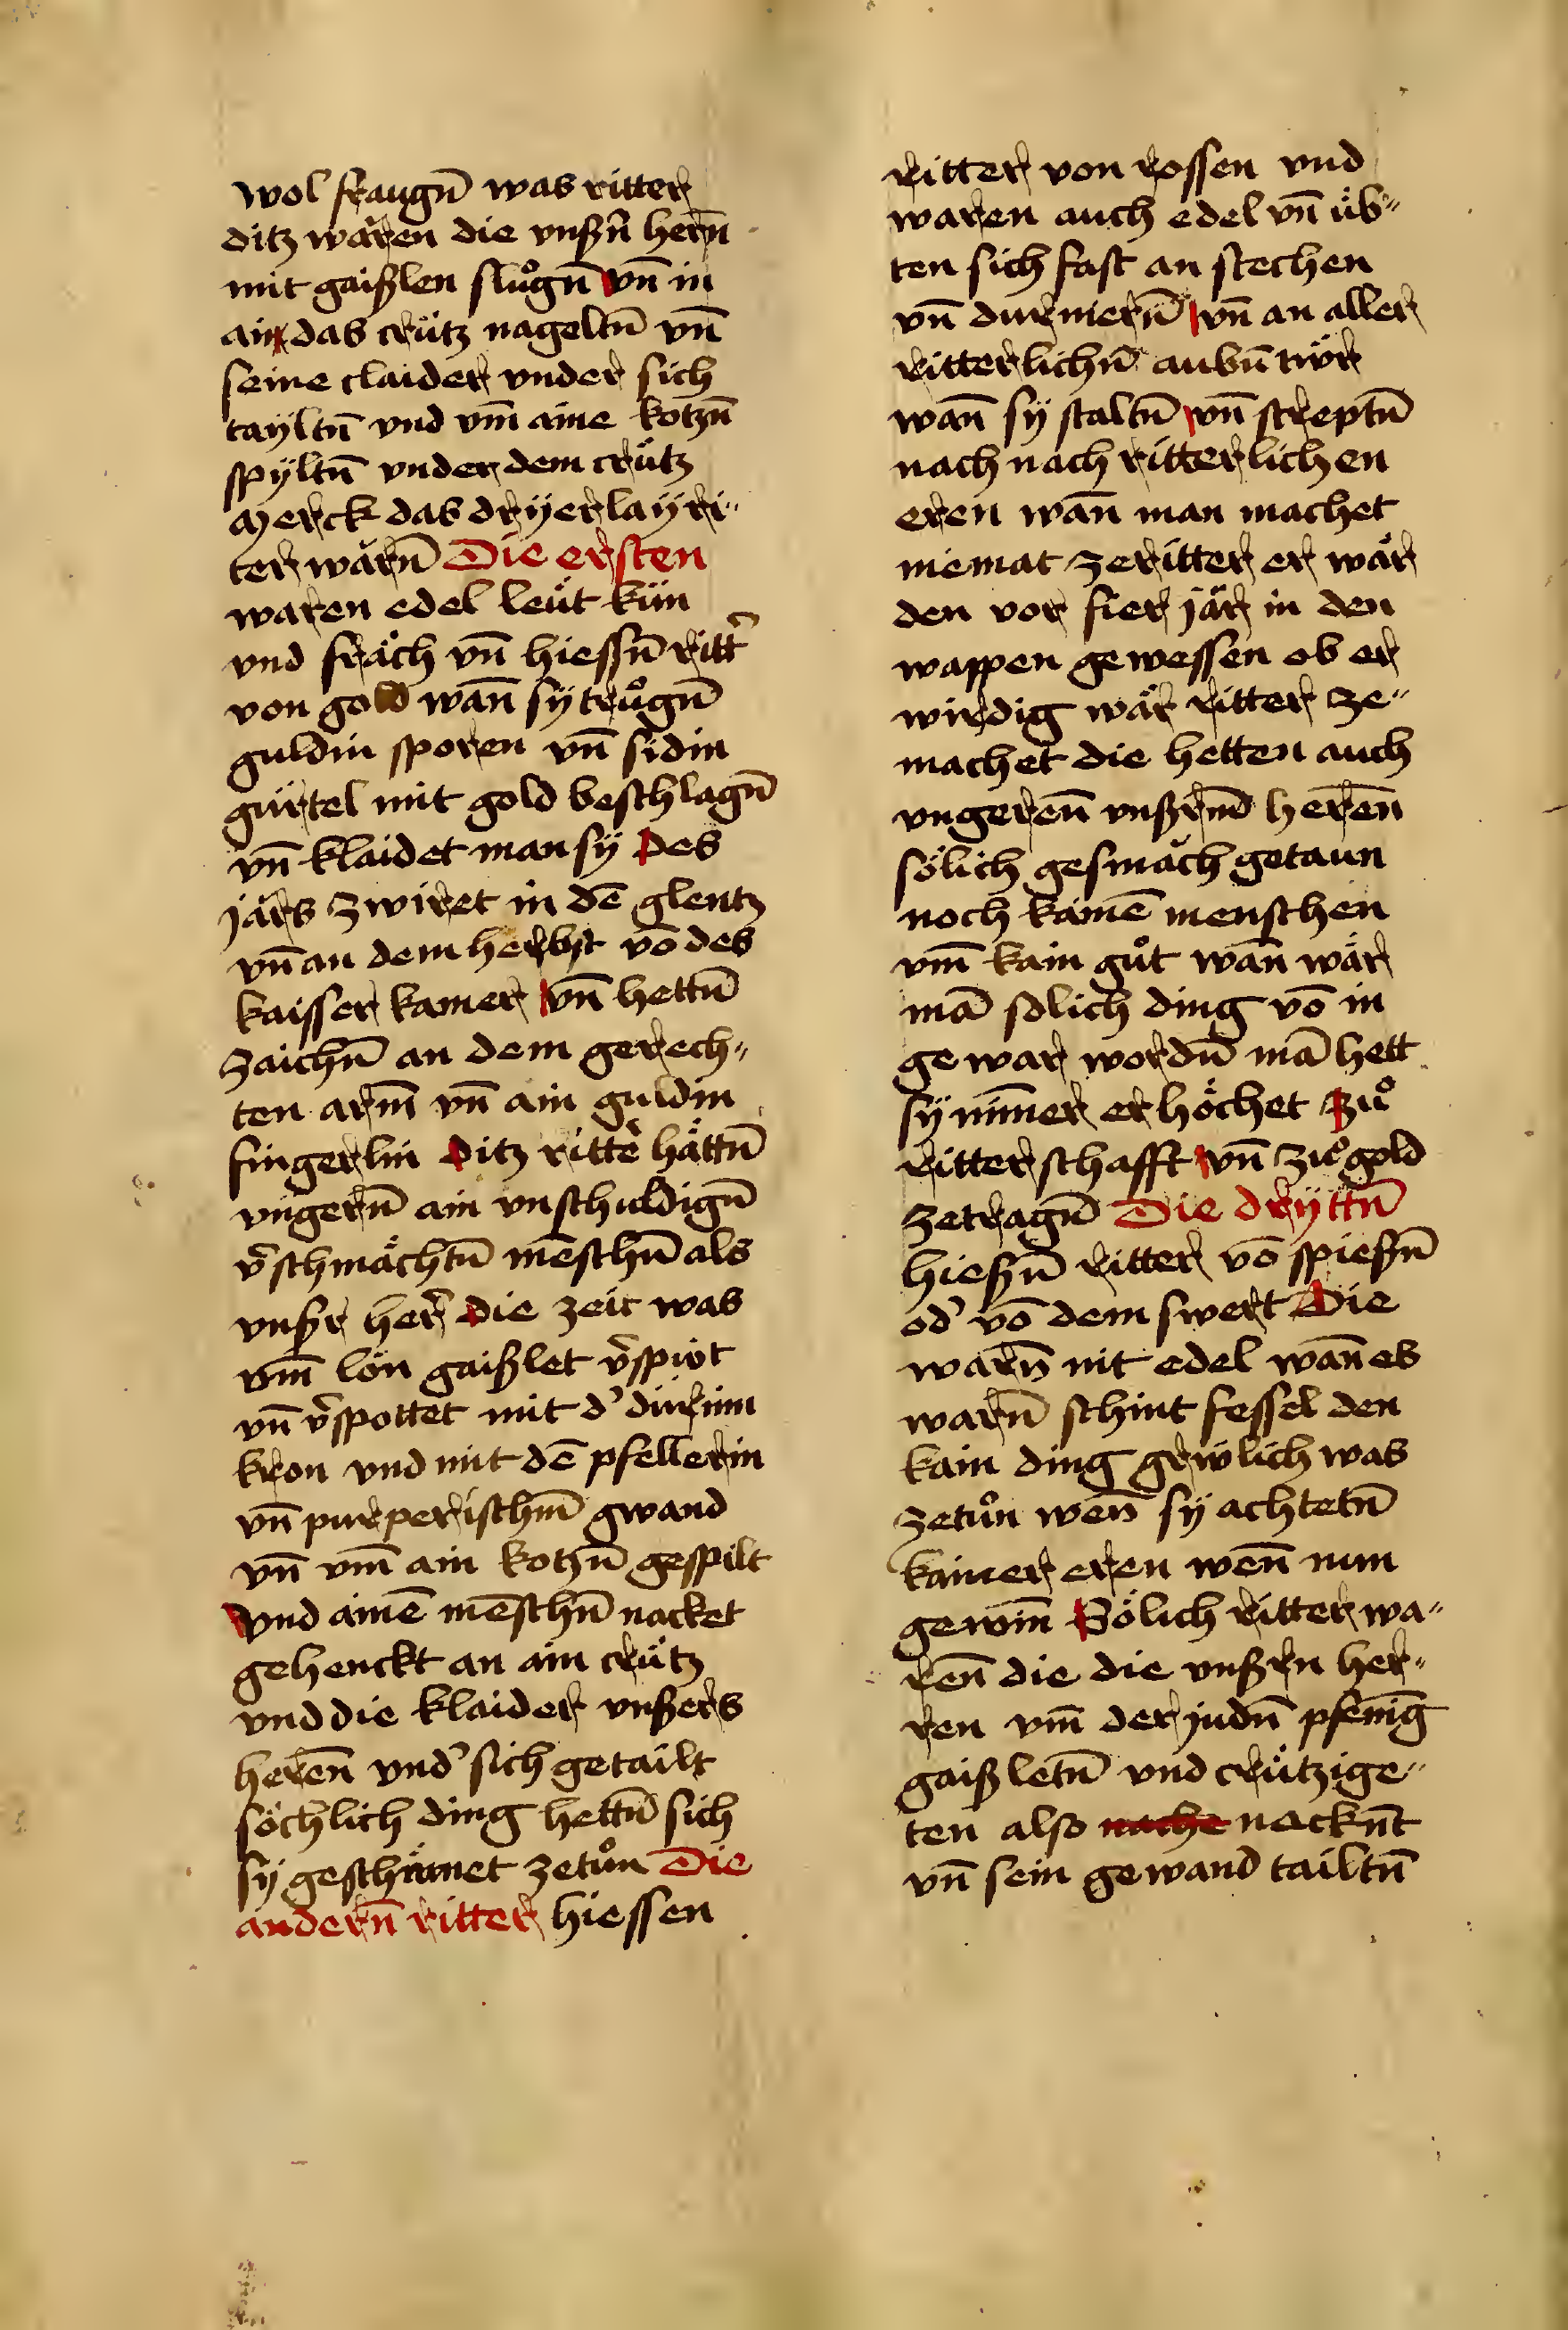 wol fraugn̄ was ritter
ditz wären die vnßn̄ hern̄
mit gaißlen slůgn̄ vn̄ in
ain das crütz nageltn̄ vn̄
seine claider vnder sich
taÿltn̄ vnd vm̄ aine kotzn̄
spÿltn̄ vnder dem crütz
Merck das drÿerlaÿ ri„
ter wärn̄ Die ersten
waren edel leüt kün
vnd fräch vn̄ hiessn̄ ritt̓
von gold wan̄ sÿ trůgn̄
guldin sporen vn̄ sidin
gürtel mit gold beschlagn̄
vn̄ klaidet man sÿ Des
järs zwiret in dē glentz
vn̄ an dem herbst vō des
kaisser kamer vn̄ hettn̄
zaichn̄ an dem gerech„
ten arm̄ vn̄ ain guldin
fingerlin Ditz ritte̓ hättn̄
vngern̄ ain vnschuldign̄
v̓schmächtn̄ mēschn̄ als
vnßr her̓ die zeit was
vm̄ lon gaißlet v̓spiwt
vn̄ v̓spottet mit d̓ dürnin
kron vnd mit dē pfellerin
vn̄ purperischm̄ gwand
vn̄ vm̄ ain kotzn̄ gespilt
Vnd ainē mēschn̄ nacket
gehenckt an ain crütz
vnd die klaider vnßers
heren̄ vnd̓ sich getailt
söchlich ding hettn̄ sich
sÿ geschämet zetůn Die
andern̄ ritter hiessen
ritter von rossen vnd
waren auch edel vn̄ üb„
ten sich fast an stechen
vn̄ durniern̄ vn̄ an aller
ritterlichn̄ aubn̄twr
wan̄ sÿ staltn̄ vn̄ streptn̄
nach nach ritterlichen
eren wan̄ man machet
niemat zeritter er wär
den vor fier jär in den
wappen gewessen ob er
wirdig wär ritter ze„
machet die hetten auch
vngeren̄ vnßrm̄ heren̄
sölich gesmäch getaun
noch kainē menschen
vm̄ kain gůt wan̄ wär
mā solich ding vō in
gewar wordn̄ mā hett
sÿ nim̄er erhöchet Zů
ritterschafft vn̄ zů gold
zetragn̄ Die drÿttn̄
hießn̄ ritter vō spießn̄
od̓ vō dem swert Die
warn̄ nit edel wan̄ es
warn̄ schint fessel den
kain ding grwlich was
zetůn wen̄ sÿ achtetn̄
kainer eren wen̄ nun
gewin̄ Sölich ritter wa„
ren̄ die die vnßrn her„
ren vm̄ der judn̄ pfenīg
gaißletn̄ vnd crützige„
ten also nache nacknt̄
vn̄ sein gewand tailtn̄